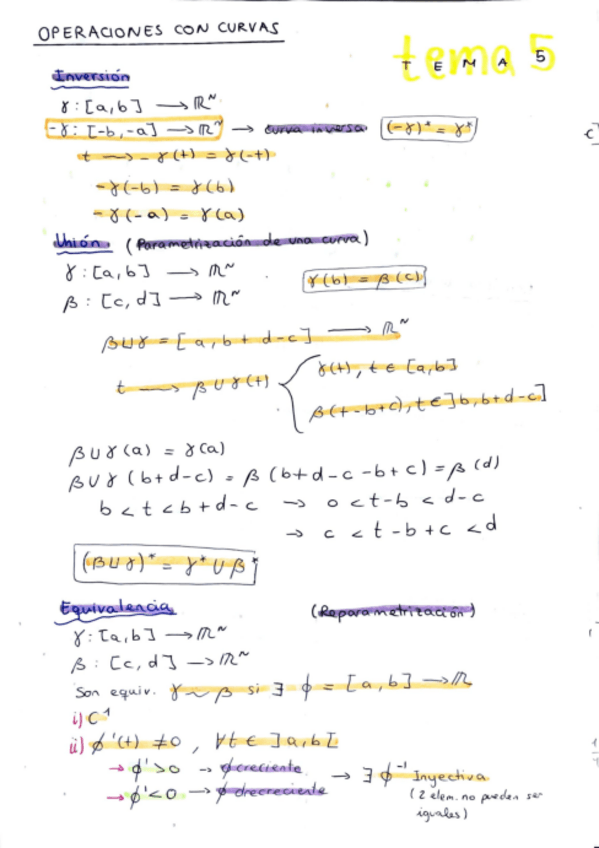 OPERACIONES CON CURVAS
tema 5
TEMA 5
Inversión
γ : [a,b] → ℝᴺ
-γ : [-b,-a] → ℝᴺ → curva inversa (-γ)* = γ*
t → -γ(t) = γ(-t)
-γ(-b) = γ(b)
-γ(-a) = γ(a)
Unión. (Parametrización de una curva)
γ : [a,b] → ℝᴺ
γ(b) = β(c)
β : [c,d] → ℝᴺ
β∪γ = [a, b+d-c] → ℝᴺ
t → β∪γ(t) { γ(t), t ∈ [a,b]
β(t-b+c), t ∈ ]b, b+d-c]
β∪γ(a) = γ(a)
β∪γ(b+d-c) = β(b+d-c-b+c) = β(d)
b < t < b+d-c → 0 < t-b < d-c
→ c < t-b+c < d
(β∪γ)* = γ* ∪ β*
Equivalencia (Reparametrización)
γ : [a,b] → ℝᴺ
β : [c,d] → ℝᴺ
Son equiv. γ ∼ β si ∃ ϕ = [a,b] → ℝ
i) C¹
ii) ϕ'(t) ≠ 0, ∀t ∈ ]a,b[
→ ϕ' > 0 → ϕ creciente
→ ∃ ϕ⁻¹ Inyectiva
→ ϕ' < 0 → ϕ drecreciente
(2 elem. no pueden ser
iguales)